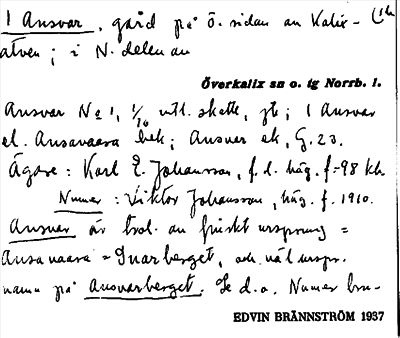 1 Ansvar, gård på ö. sidan av Kalix- (1h
älven; i N. delen av
Överkalix sn o. tg Norrb. l.
Ansvar No 1, 1/16 mtl. skatte, jb; 1 Ansvar
el. Ansavaara bek; Ansvar ek, G. 23.
Ägare: Karl E. Johansson, f. d. häg. f. -98 kh
Numer: Viktor Johansson, häg. f. 1910.
Ansvar är trol. av finskt ursprung =
Ansavaara = Snarberget, och väl urspr.
namn på Ansvarberget. Se d. o. Numer bru-
EDVIN BRÄNNSTRÖM 1937